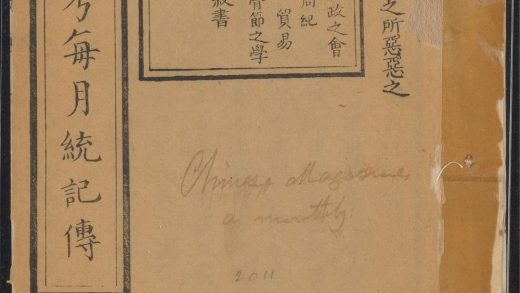 之所惡惡之
政之會
紀
貿易
骨節之學
書
考每月統記傳
Chinese Magazine,
a monthly
2011